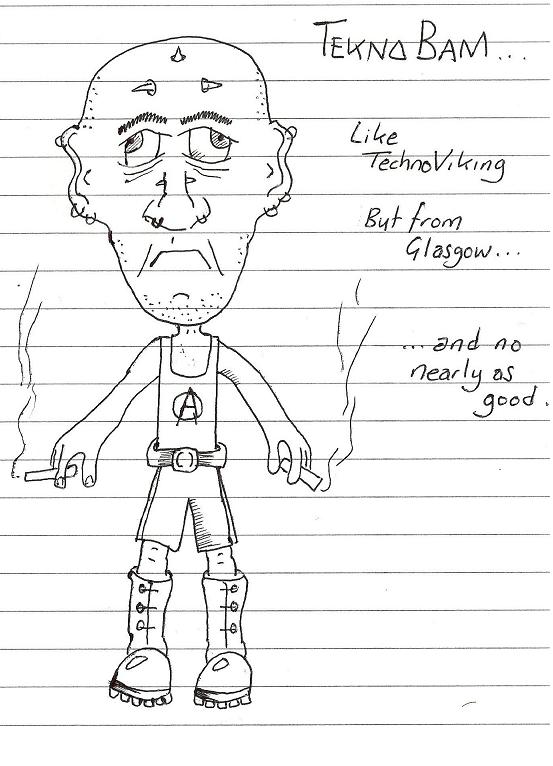 TEKNO BAM...
Like
TechnoViking
But from
Glasgow...
...and no
nearly as
good.
A